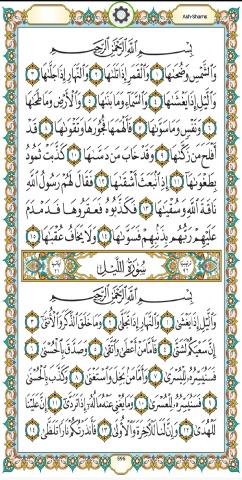 Ash-Shams
بِسْمِ اللَّهِ الرَّحْمَٰنِ الرَّحِيمِ
وَالشَّمْسِ وَضُحَاهَا ١ وَالْقَمَرِ إِذَا تَلَاهَا ٢ وَالنَّهَارِ إِذَا جَلَّاهَا ٣
وَاللَّيْلِ إِذَا يَغْشَاهَا ٤ وَالسَّمَاءِ وَمَا بَنَاهَا ٥ وَالْأَرْضِ وَمَا طَحَاهَا
٦ وَنَفْسٍ وَمَا سَوَّاهَا ٧ فَأَلْهَمَهَا فُجُورَهَا وَتَقْوَاهَا ٨ قَدْ
أَفْلَحَ مَن زَكَّاهَا ٩ وَقَدْ خَابَ مَن دَسَّاهَا ١٠ كَذَّبَتْ ثَمُودُ
بِطَغْوَاهَا ١١ إِذِ انبَعَثَ أَشْقَاهَا ١٢ فَقَالَ لَهُمْ رَسُولُ اللَّهِ
نَاقَةَ اللَّهِ وَسُقْيَاهَا ١٣ فَكَذَّبُوهُ فَعَقَرُوهَا فَدَمْدَمَ
عَلَيْهِمْ رَبُّهُم بِذَنبِهِمْ فَسَوَّاهَا ١٤ وَلَا يَخَافُ عُقْبَاهَا ١٥
سُورَةُ اللَّيْلِ
بِسْمِ اللَّهِ الرَّحْمَٰنِ الرَّحِيمِ
وَاللَّيْلِ إِذَا يَغْشَىٰ ١ وَالنَّهَارِ إِذَا تَجَلَّىٰ ٢ وَمَا خَلَقَ الذَّكَرَ وَالْأُنثَىٰ ٣
إِنَّ سَعْيَكُمْ لَشَتَّىٰ ٤ فَأَمَّا مَنْ أَعْطَىٰ وَاتَّقَىٰ ٥ وَصَدَّقَ بِالْحُسْنَىٰ ٦
فَسَنُيَسِّرُهُ لِلْيُسْرَىٰ ٧ وَأَمَّا مَن بَخِلَ وَاسْتَغْنَىٰ ٨ وَكَذَّبَ بِالْحُسْنَىٰ
٩ فَسَنُيَسِّرُهُ لِلْعُسْرَىٰ ١٠ وَمَا يُغْنِي عَنْهُ مَالُهُ إِذَا تَرَدَّىٰ ١١ إِنَّ عَلَيْنَا
لَلْهُدَىٰ ١٢ وَإِنَّ لَنَا لَلْآخِرَةَ وَالْأُولَىٰ ١٣ فَأَنذَرْتُكُمْ نَارًا تَلَظَّىٰ ١٤
596